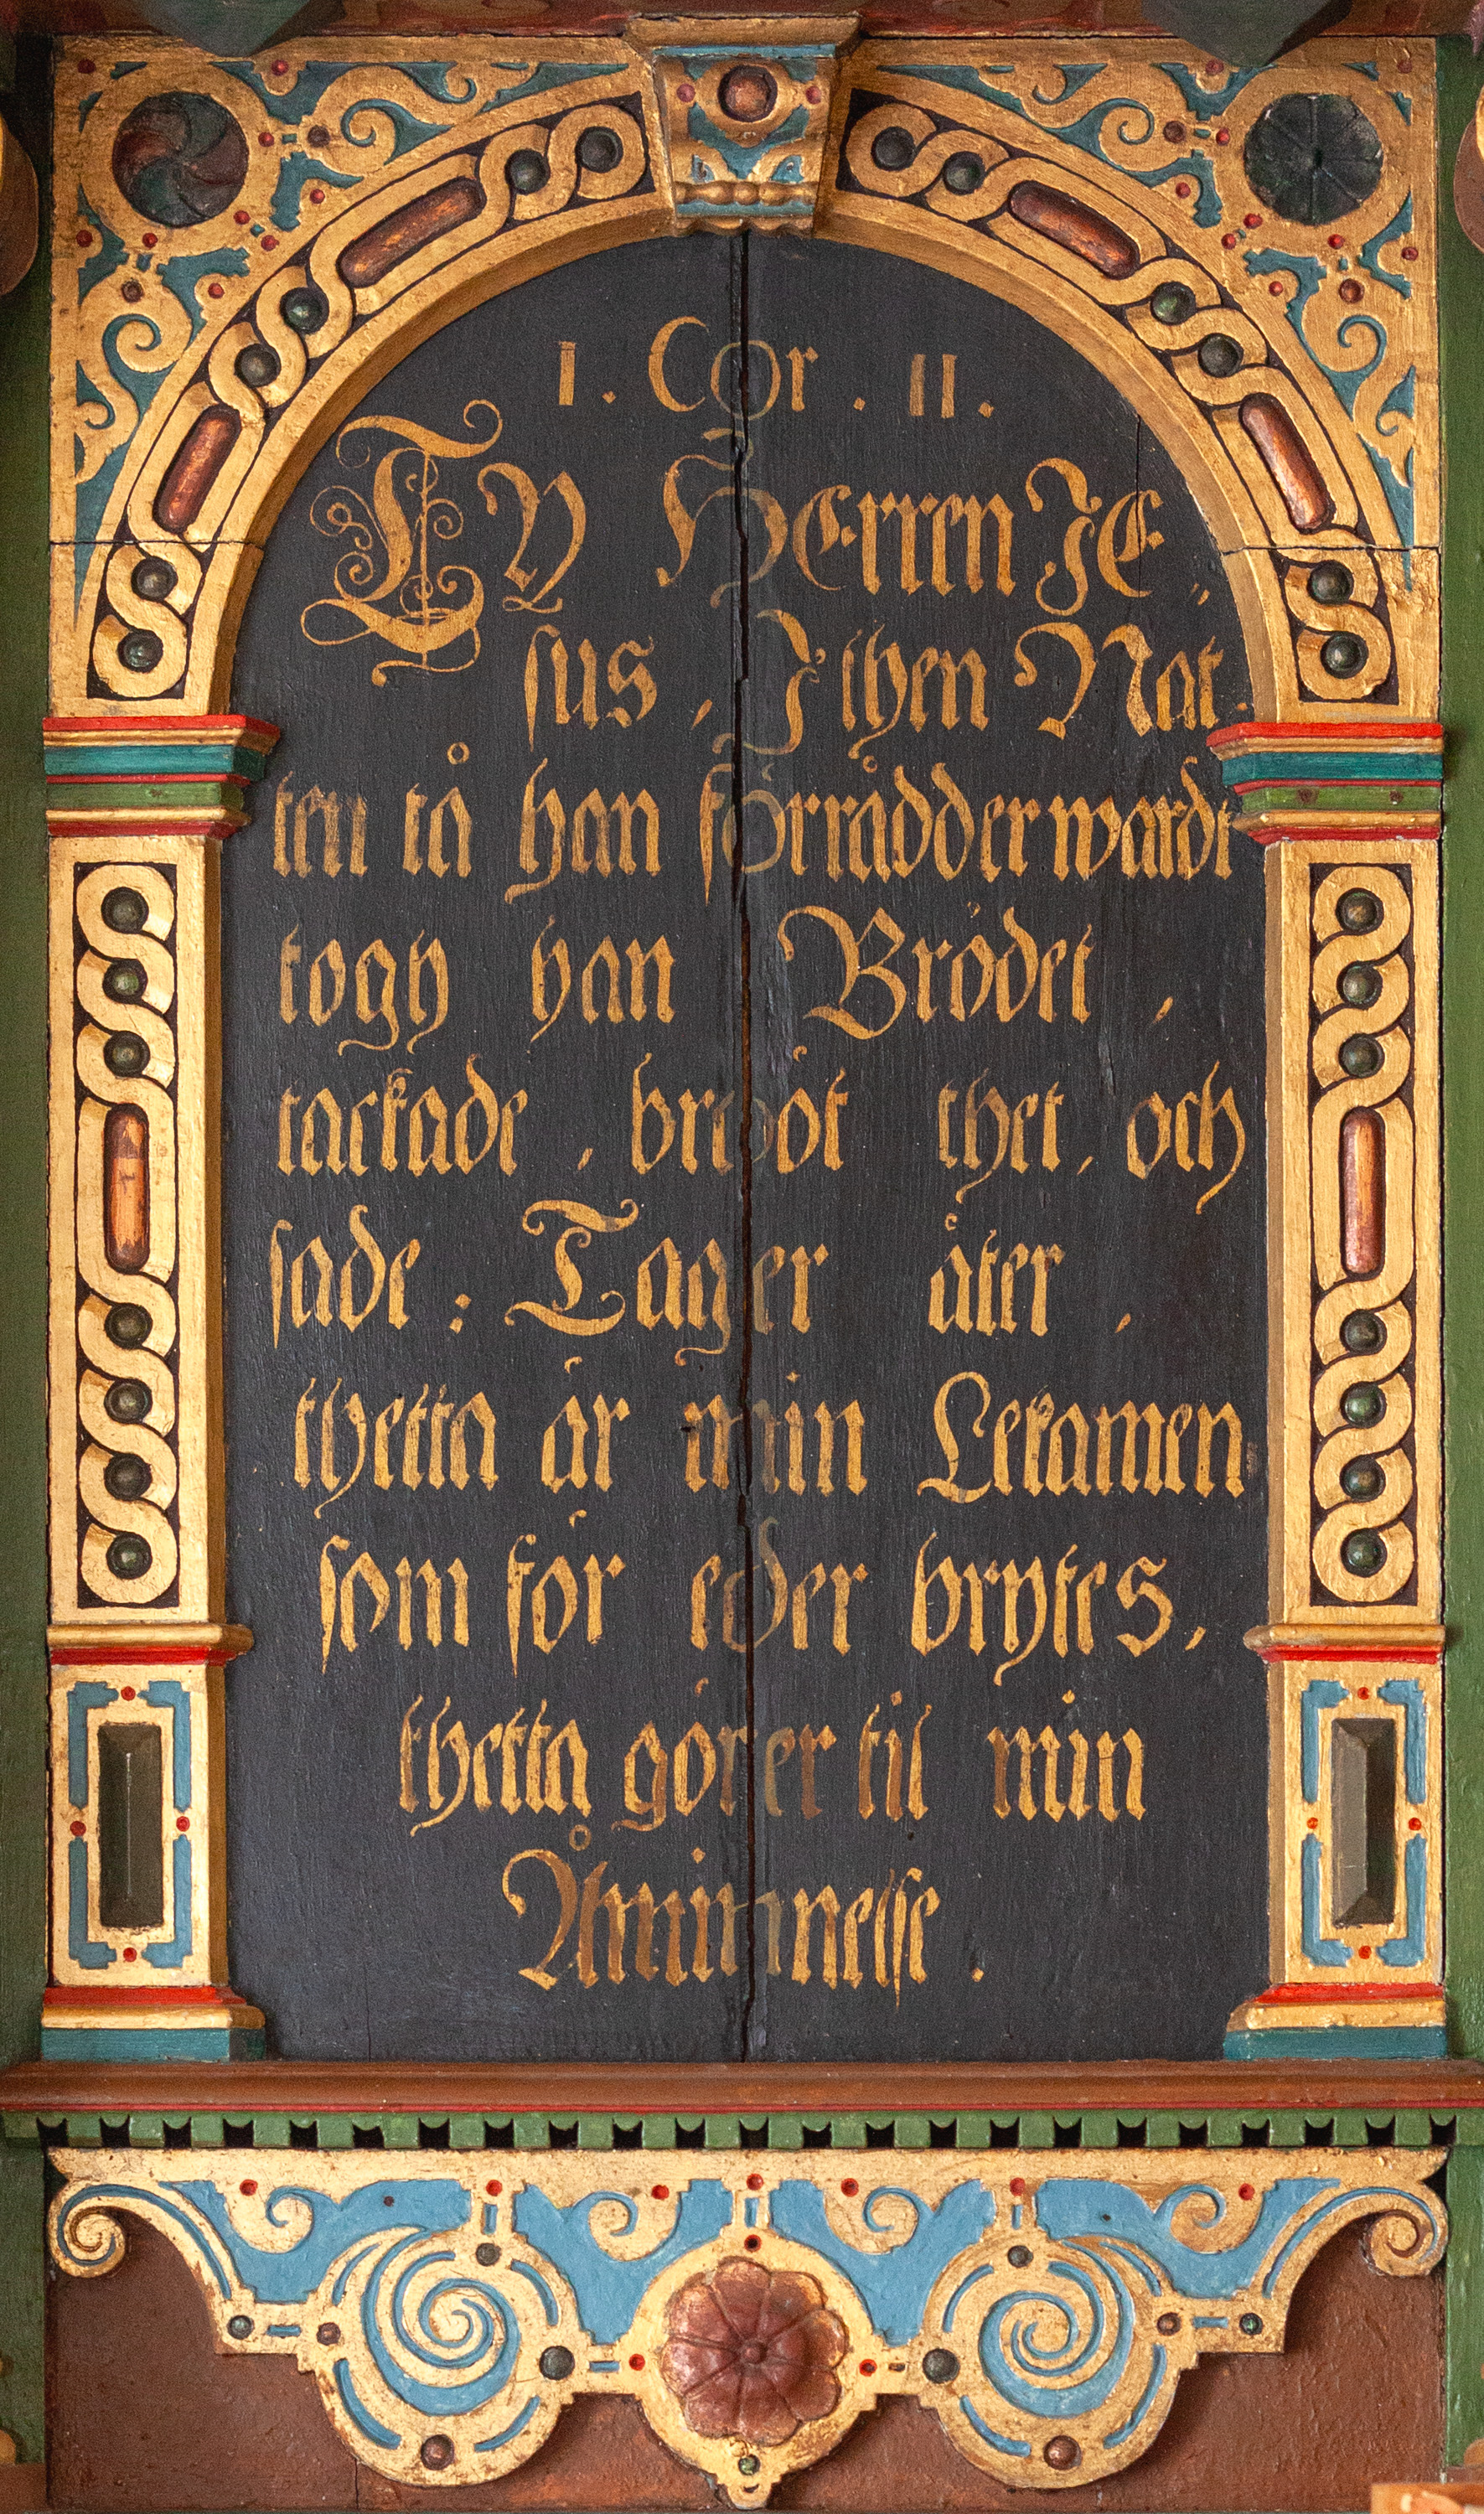 1. Cor. 11.
Ty Herren Je,,
sus, J then Nat-
ten tå han förrådder wardt
togh han Brödet,
tackade, brööt thet, och
sade: Tager äter,
thetta är min Lekamen
som för eder brytes,
thetta görer til min
Åminnelse.